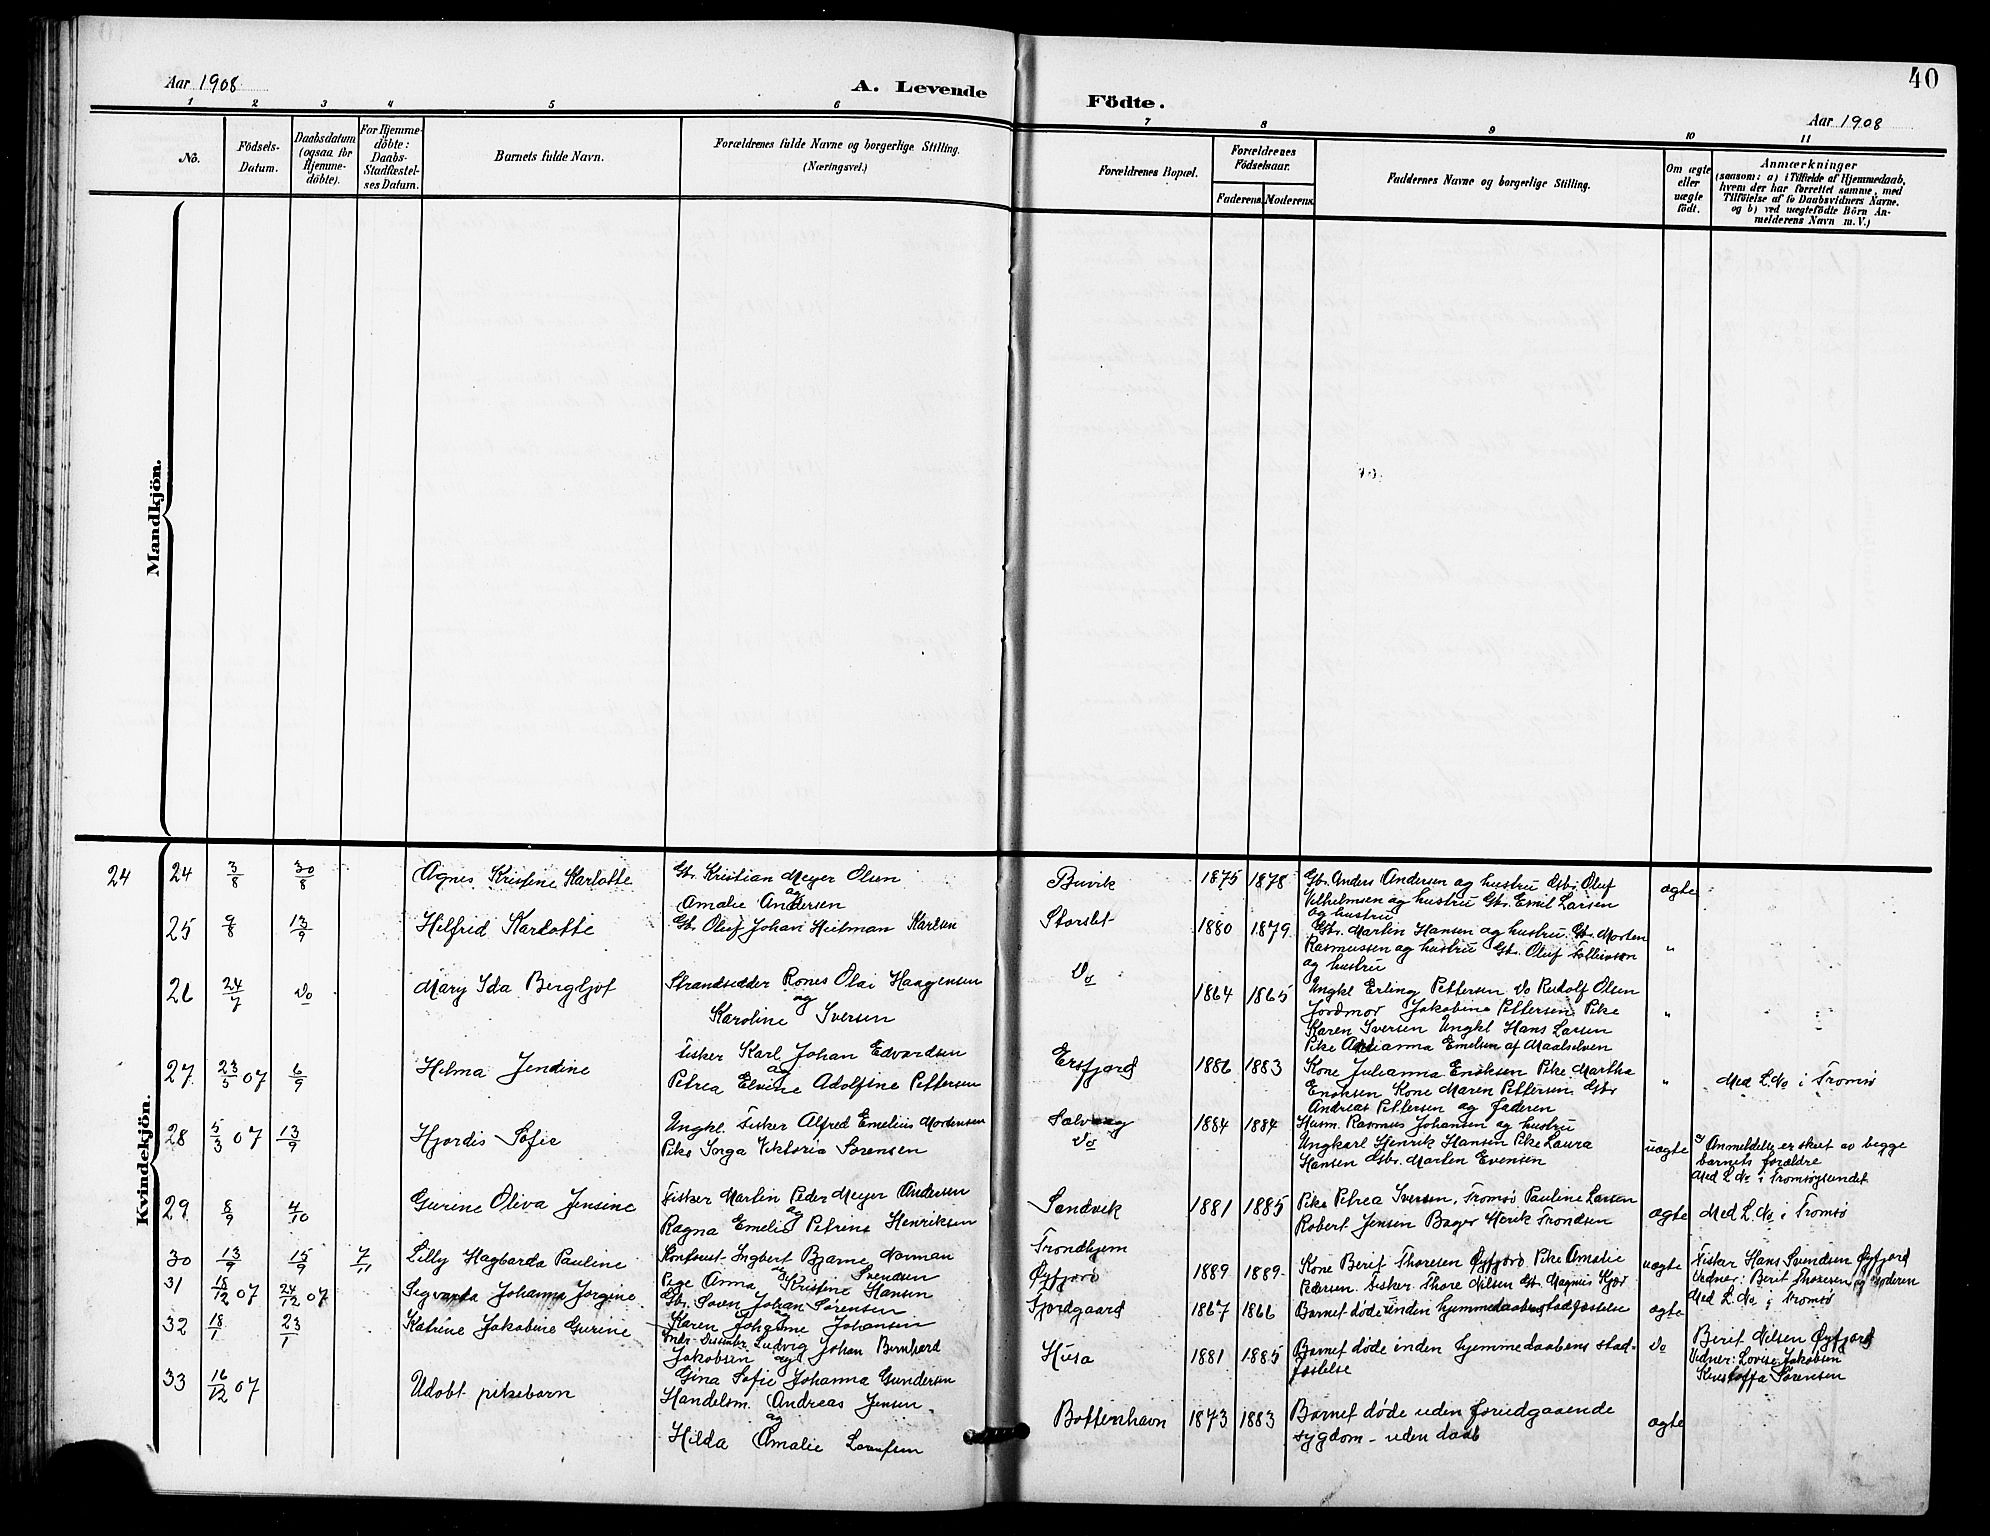 Aar 1908
A. Levende
Födte.
40
Aar 1908
1 2 3 4 5 6 7 8 9 10 11
No.
Födsels-
Datum.
Daabsdatum
(ogsaa for
Hjemme-
döbte).
For Hjemme-
döbte:
Daabs-
Stadfæstel-
ses Datum.
Barnets fulde Navn.
Forældrenes fulde Navne og borgerlige Stilling.
(Næringsvei.)
Forældrenes Bopæl.
Forældrenes
Födselsaar.
Faderens. Moderens.
Faddernes Navne og borgerlige Stilling.
Om ægte
eller
uægte
födt.
Anmærkninger
(saasom: a) i Tilfælde af Hjemmedaab,
hvem der har forrettet samme, med
Tilföielse af to Daabsvidners Navne.
og b) ved uægtefödte Börn An-
melderens Navn m. V.)
Mandkjön.
Kvindekjön.
24 24 3/8 30/8 Agnes Kristine Karlotte
Gb. Kristian Meyer Olsen
og
Amalie Andersen
Buvik 1875 1878
Gbr. Anders Andersen og hustru Gbr. Oluf
Vilhelmsen og hustru Gbr. Emil Larsen
og hustru
ægte
25 9/8 13/9 Hilfred Karlotte
Gb. Oluf Johan Hielman Karlsen
Storslet 1880 1879
Gbr. Martin Hansen og hustru. Gb. Morten
Rasmussen og hustru Gb. Oluf
og hustru
"
26 24/7 do Mary Ida Bergljot
Strandsidder Rones Olai Haagensen
og
Karoline Iversen
Do 1864 1865
Ungkl Erling Pettersen Do Rudolf Olsen
Jordmor Jakobine Pettersen Pike
Karen Iversen Ungkl Hans Larsen
Pike Emelsen af Maalselven
"
27 23/5 07 6/9 Helma Jendine
Fisker Karl Johan Edvardsen
og
Petrea Elvine Adolfine Pettersen
Ersfjord 1886 1883
Kone Julianna Enoksen Pike Martha
Enoksen Kone Maren Pettersen Gbr
Andreas Pettersen og faderen
"
Med L. No i Tromsø
28 5/3 07 13/9 Hjordis Sofie
Ungkl. Fisker Alfred Emelius Mortensen
Pike Inga Viktoria Sørensen
Do
1884 1884
Husm. Rasmus Johansen og hustru
Ungkarl Henrik Hansen Pike Laura
Hansen Gbr. Marten Evensen
uægte
Anmeldelse er skret av begge
barnets forældre
Med L No i Tromsøysundet
29 8/9 4/10 Gurine Oliva Jensine
Fisker Martin Peder Meyer Andersen
og
Ragna Emelie Petrine Henriksen
Sandvik 1881 1885
Pike Petrea Iversen, Tromsø Pauline Larsen
Robert Jensen Bager Henrik Trondsen
ægte
Med L. No i Tromsø
30 13/9 15/9 7/11 Lilly Hagbarda Pauline
Ingbert Bjarne Norman
og
Pige Anna Kristine Svendsen
Trondhjem
Øyfjord
1889 1889
Kone Berit Thoresen Øyfjord Pike Amalie
Pedersen. Fisker Thore Nilsen Gb. Magnus Kjær
uægte
Fisker Hans Svendsen Øyfjord
Vidner: Berit Thoresen og Moderen
31 18/12 07 24/12 07 Sigvarda Johanna Jorgine
Hansen
Gbr. Søren Johan Sørensen
Fjordgaard 1867 1866
Barnet døde inden hjemmedaabens stadfæstelse
ægte
Med L. No i Tromsø
32 18/1 23/1 Katrine Jakobine Gurine
Karen Johanne Johansen
Ludvig Johan Bernhard
Jakobsen og
Gina Sofie Johanna Gundersen
Husø 1881 1885
Barnet døde inden hjemmedaabens stad-
fæstelse
do
Berit Nilsen Øyfjord
Vidner: Lovise Jakobsen
Kristoffa Sørensen
33 16/12 07 Udøbt pikebarn
Handelsm. Andreas Jensen
og
Hilda Amalie
Bottenhavn 1873 1883
Barnet døde uden foriedgaaende
sygdom - uden daab
ægte